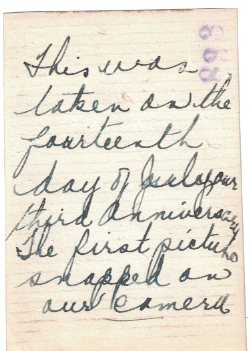 This was
taken on the
fourteenth
day of July our
third Anniversary
The first picture
snapped on
our camera